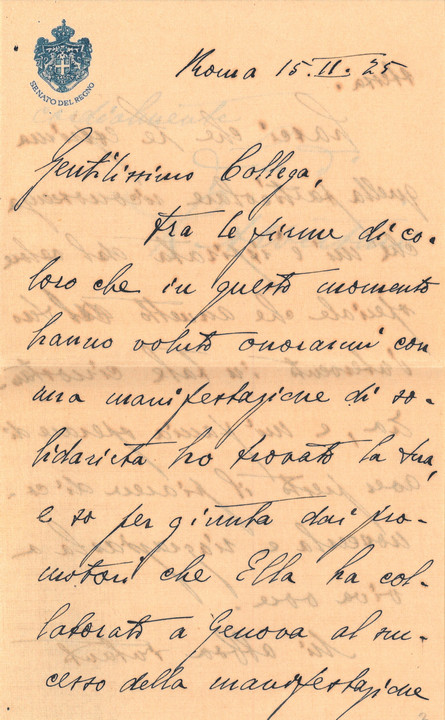 SENATO DEL REGNO
Roma 15.II.25
Gentilissimo Collega,
tra le firme di co-
loro che in questo momento
hanno voluto onorarmi con
una manifestazione di so-
lidarietà ho trovato la sua,
e so per giunta dai pro-
motori che Ella ha col-
laborato a Genova al suc-
cesso della manifestazione